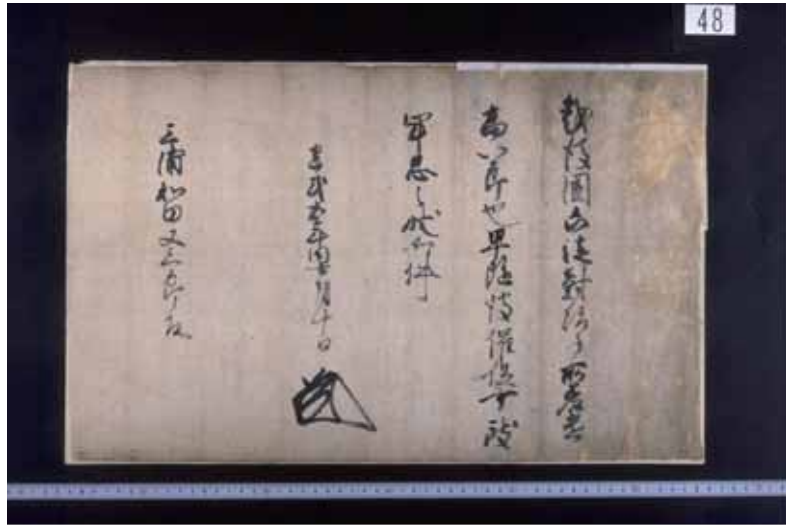 48
越後國凶徒對治事所差遣
高八郎也早随彼催促可致
軍忠之状如件
建武五年閏七月十日
三浦和田又三郎殿